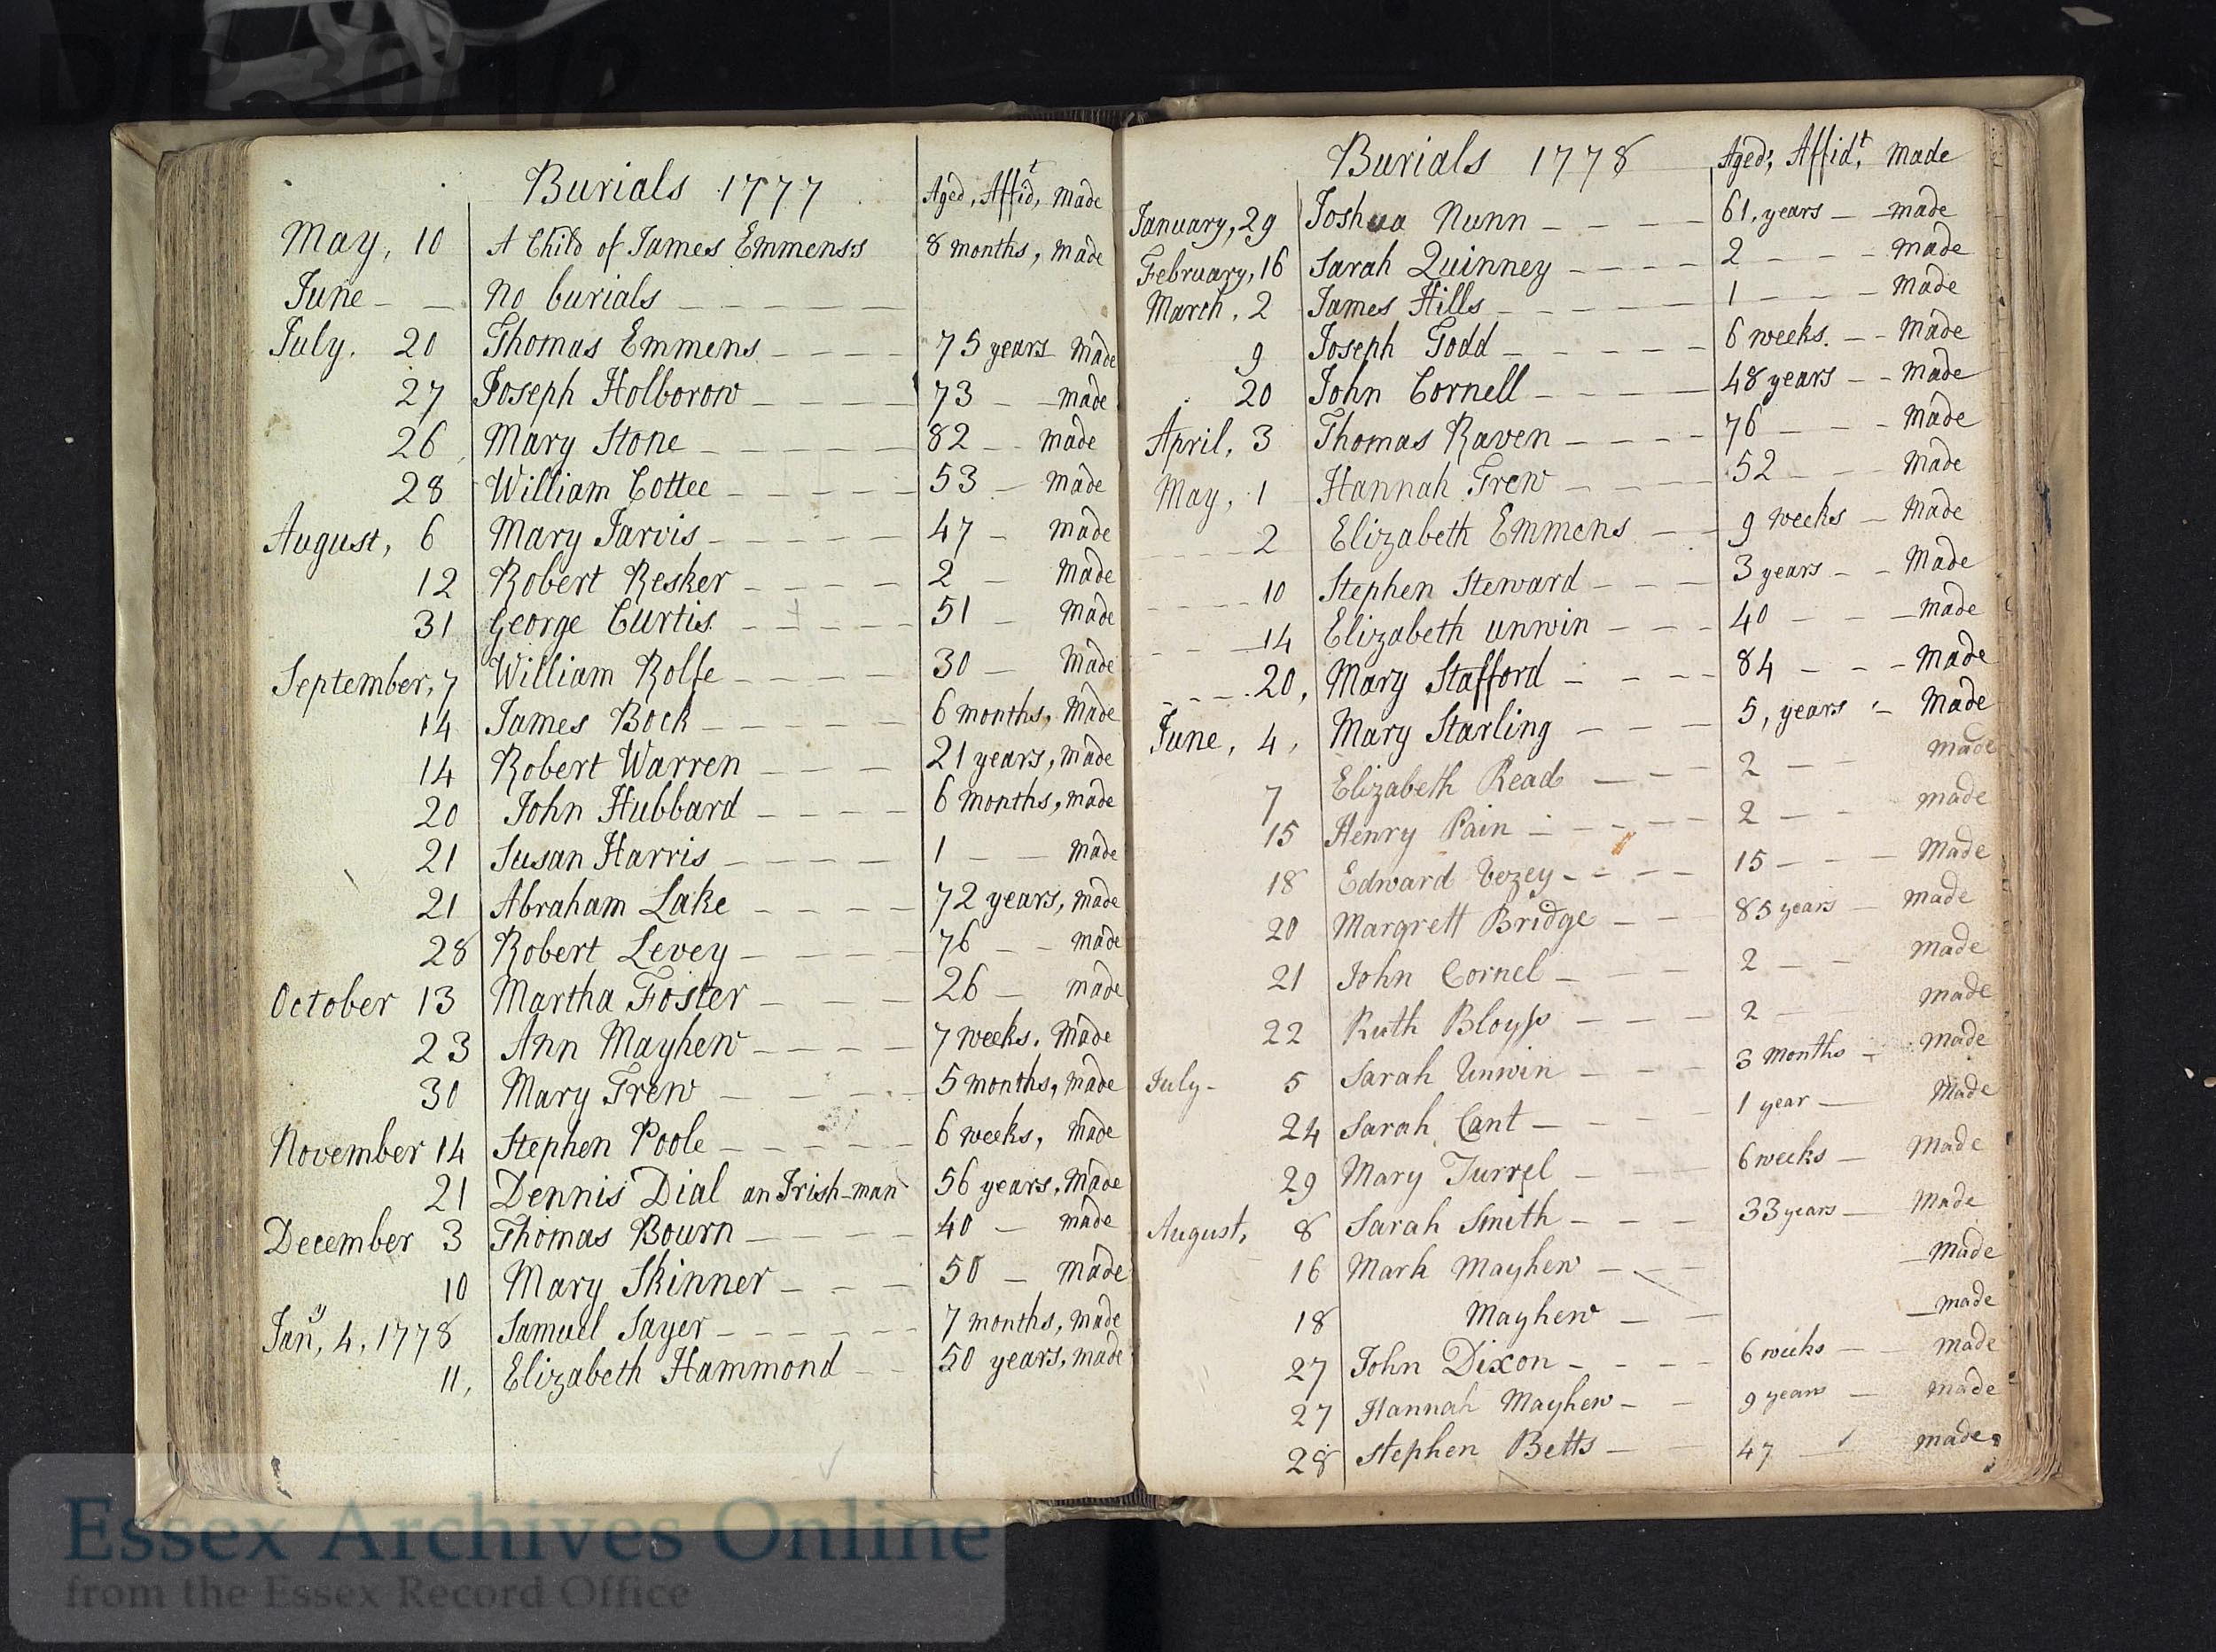 Burials 1777 Aged, Affidt, Made
May, 10 A Child of James Emmens's 8 months, made
June - - No burials - - - - -
July. 20 Thomas Emmens - - - - 75 years made
27 Joseph Holborow - - - - 73 - - made
26 Mary Stone - - - - - 82 - - made
28 William Cottee - - - - - 53 - made
August, 6 Mary Jarvis - - - - - 47 - made
12 Robert Resker - - - - 2 - Made
31 George Curtis - - - - - 51 - Made
September, 7 William Rolfe - - - - 30 - Made
14 James Bock - - - - - 6 months, Made
14 Robert Warren - - - - 21 years, made
20 John Hubbard - - - - 6 months, made
21 Susan Harris - - - - 1 - - made
21 Abraham Lake - - - - 72 years, made
28 Robert Levey - - - - 76 - - made
October 13 Martha Foster - - - 26 - made
23 Ann Mayhew - - - - 7 weeks. Made
30 Mary Trew - - - - 5 months, made
November 14 Stephen Poole - - - - - 6 weeks, made
21 Dennis Dial an Irish-man 56 years, made
December 3 Thomas Bourn - - - - 40 - made
10 Mary Skinner - - - 50 - Made
Jany, 4, 1778 Samuel Sayer - - - - - 7 months, made
11, Elizabeth Hammond - - 50 years, made
Burials 1778 Aged, Affidt, Made
January, 29 Joshua Nunn - - - - 61, years - made
February, 16 Sarah Quinney - - - - 2 - - - made
March, 2 James Hills - - - - - 1 - - - Made
9 Joseph Todd - - - - - 6 weeks. - - Made
20 John Cornell - - - - 48 years - - Made
April, 3 Thomas Raven - - - - 76 - - - Made
May, 1 Hannah Trew - - - - 52 - - - Made
- - - - 2 Elizabeth Emmens - - 9 weeks - Made
- - - - 10 Stephen Steward - - - 3 years - - Made
- - - 14 Elizabeth Unwin - - - 40 - - - made
- - - - 20, Mary Stafford - - - - 84 - - - Made
June, 4, Mary Starling - - - 5, years - Made
7 Elizabeth Read - - - 2 - - made
15 Henry Pain - - - - - 2 - - made
18 Edward Vozey - - - - 15 - - - Made
20 Margrett Bridge - - 85 years - made
21 John Cornel - - - 2 - - made
22 Ruth Bloyss - - - 2 - made
July - 5 Sarah Unwin - - - 3 Months - made
24 Sarah Cant - - - - 1 year - Made
29 Mary Turrel - - - 6 weeks - Made
August, 8 Sarah Smith - - - 33 years - Made
16 Mark Mayhew - - - - made
18 Mayhew - - - made
27 John Dixon - - - - 6 weeks - - made
27 Hannah Mayhew - - 9 years - made
28 Stephen Betts - - 47 - - made
Essex Archives Online
from the Essex Record Office